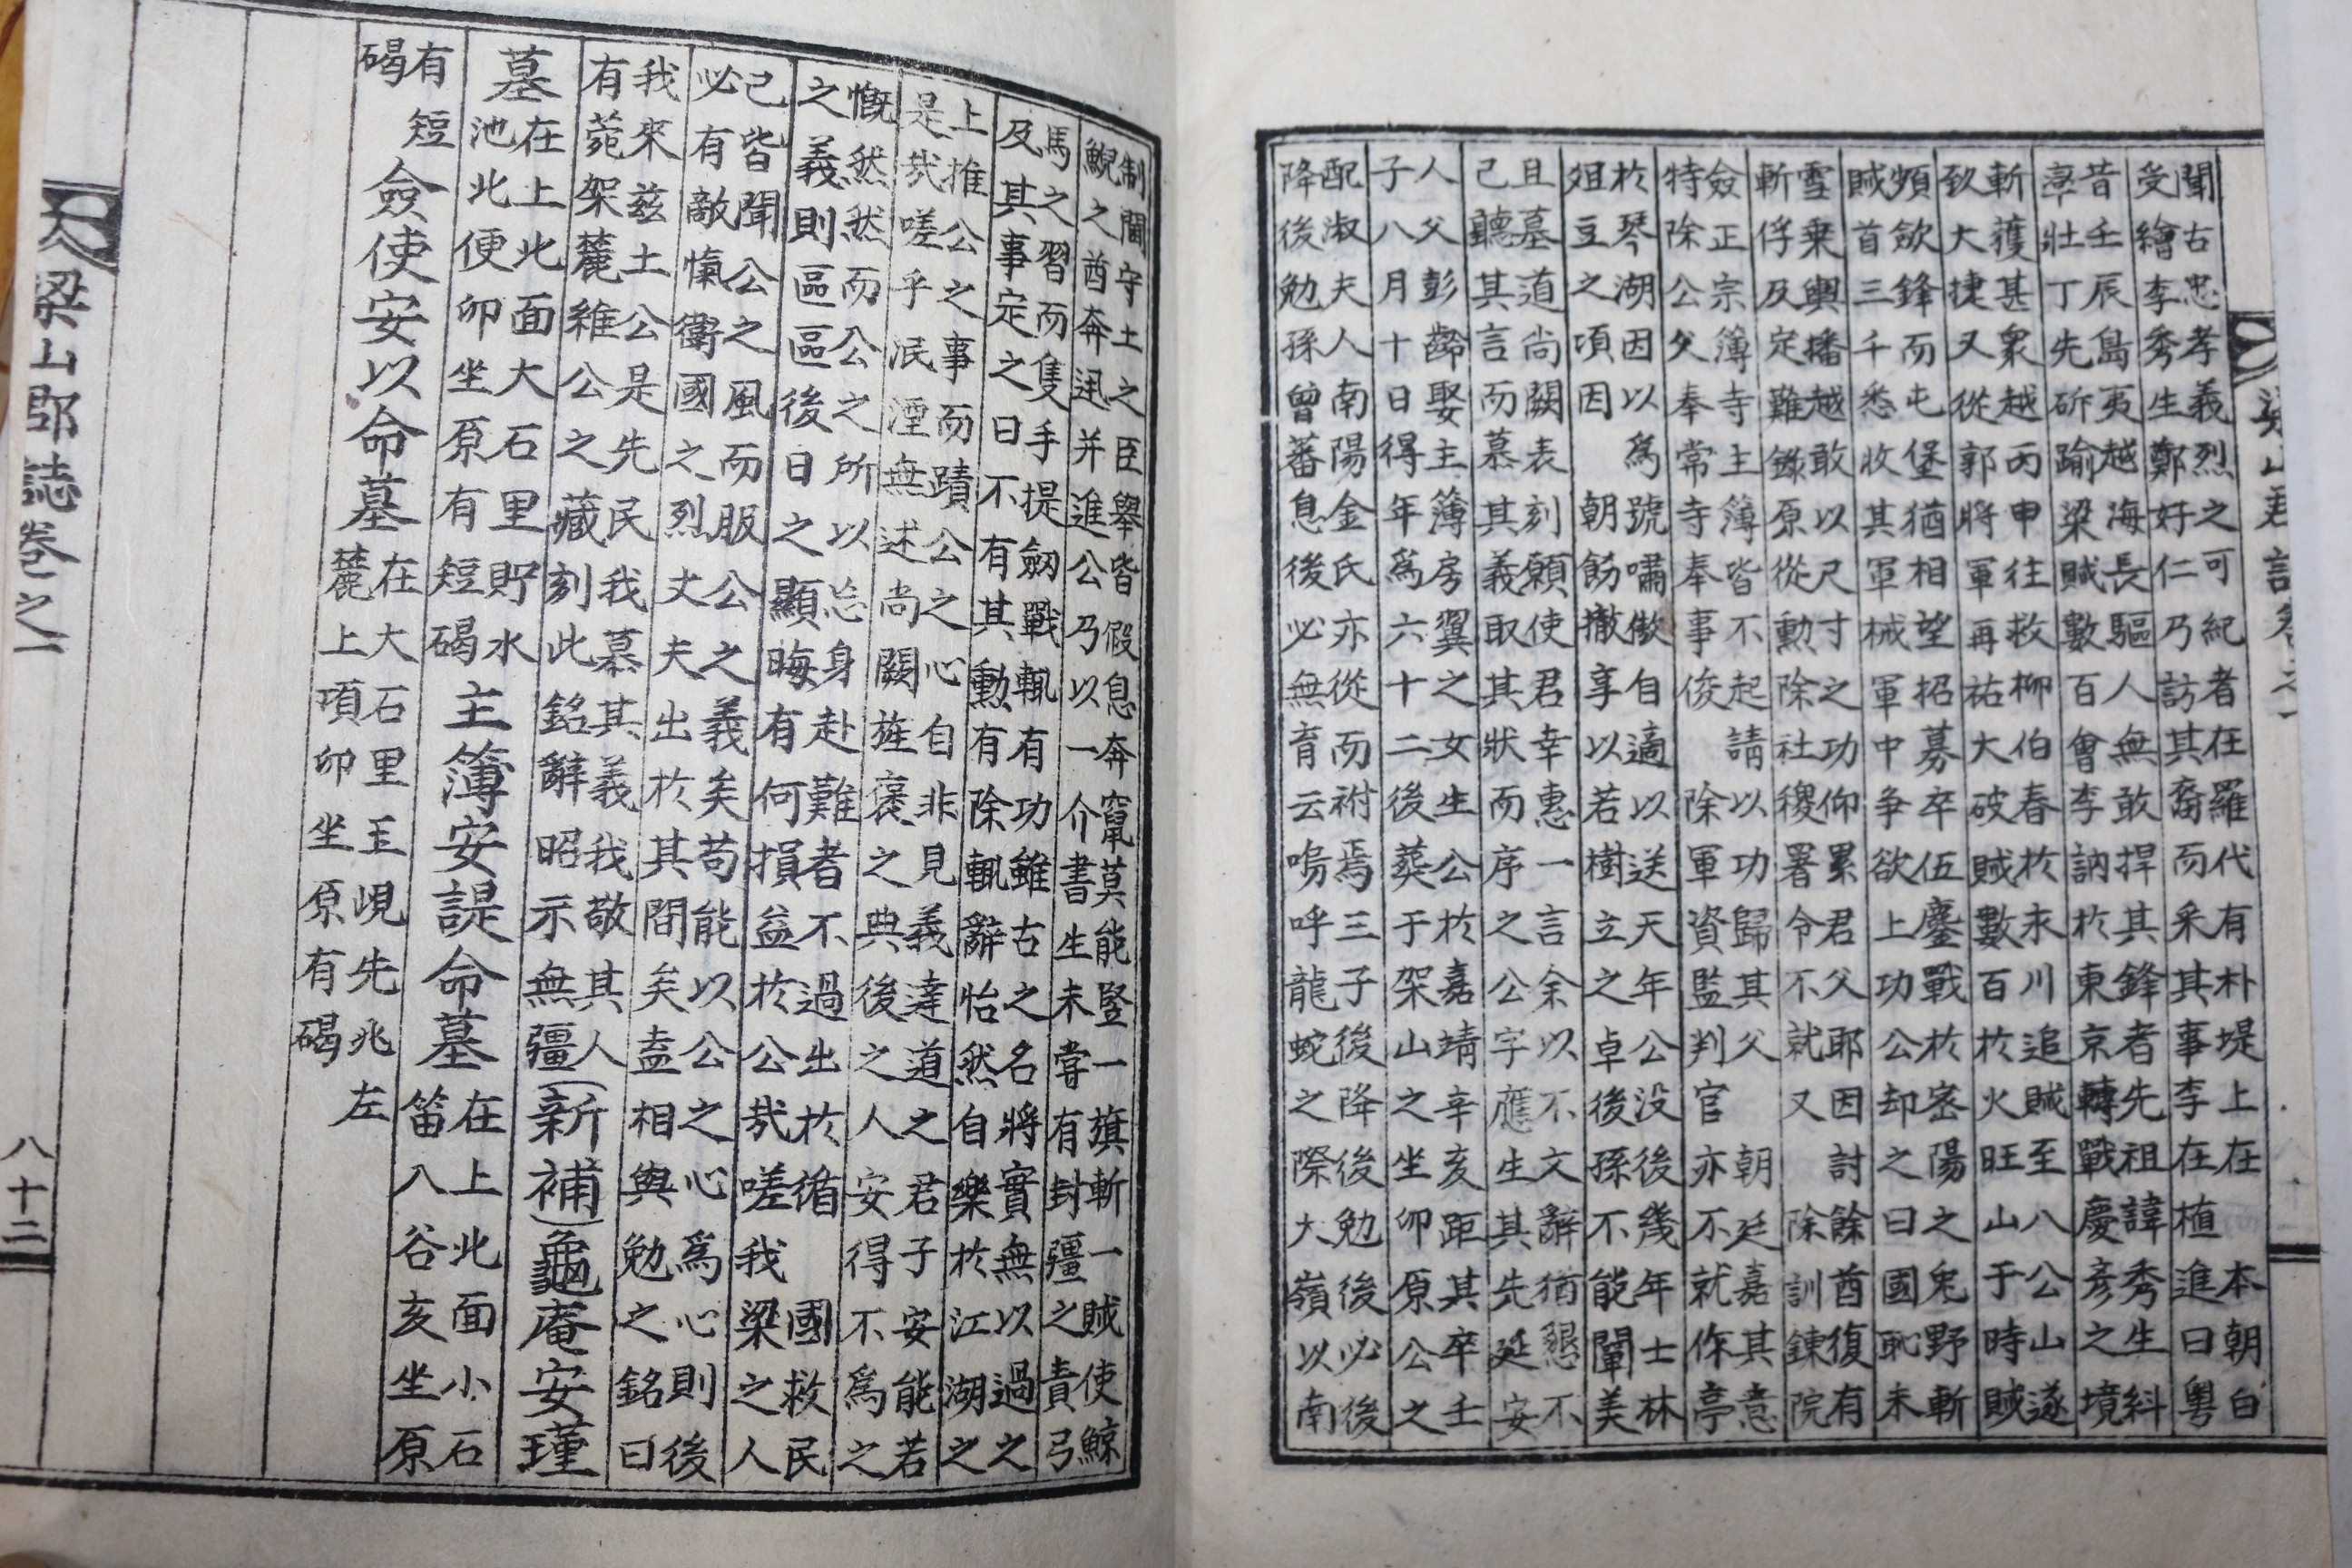 聞古忠孝義烈之可紀者在羅代有朴堤上在 本朝白
受繪李秀生鄭好仁乃訪其裔而采其事李在植進曰粵
昔壬辰島夷越海長驅人無敢捍其鋒者先祖諱秀生糾
率壯丁先斫踰梁賊數百會李訥於東京轉戰慶彦之境
斬獲甚衆越丙申往救柳伯春於永川追賊至八公山遂
致大捷又從郭將軍再祐大破賊數百於火旺山于時賊
頻斂鋒而屯堡猶相望招募卒伍鏖戰於密陽之兎野斬
賊首三千悉收其軍械軍中爭欲上功公却之曰國恥未
雪乗輿播越敢以尺寸之功仰累君父耶因討餘酋復有
斬俘及定難錄原從勳除社稷署令不就又 除訓鍊院
僉正宗簿寺主簿皆不起請以功歸其父 朝廷嘉其意
特除公父奉常寺奉事俊 除軍資監判官亦不就作亭
於琴湖因以爲號嘯傲自適以送天年公没後幾年士林
俎豆之項因 朝飭撤享以若樹立之卓後孫不能闡美
且墓道尚闕表刻願使君幸惠一言余以不文辭猶懇不
己聽其言而慕其義取其狀而序之公字應生其先延安
人父彭齡娶主簿房翼之女生公於嘉靖辛亥距其卒壬
子八月十日得年爲六十二後葬于架山之坐卯原公之
配淑夫人南陽金氏亦從而祔焉三子後降後勉後必後
降後勉孫曾蕃息後必無育云嗚呼龍蛇之際大嶺以南
制閫守土之臣擧皆假息奔竄莫能竪一旗斬一賊使鯨
鯢之酋奔迅并進公乃以一介書生未嘗有封疆之責弓
馬之習而隻手提劒戰輒有功雖古之名將實無以過之
及其事定之日不有其勳有除輒辭怡然自樂於江湖之
上推公之事而蹟公之心自非見義達道之君子安能若
是哉嗟乎泯湮無述尚闕旌褒之典後之人安得不爲之
慨然然而公之所以忘身赴難者不過出於循 國救民
之義則區區後日之顯晦有何損益於公哉嗟我梁之人
己皆聞公之風而服公之義矣苟能以公之心爲心則後
必有敵愾衛國之烈丈夫出於其間矣盍相與勉之銘曰
我來茲土公是先民我慕其義我敬其人
有菀架麓維公之藏刻此銘辭昭示無疆(新補)龜庵安瑾
墓在上北面大石里貯水
池北便卯坐原有短碣主簿安諟命墓在上北面小石
笛八谷亥坐原
有短
碣僉使安以命墓在大石里玉峴先兆左
麓上項卯坐原有碣
梁山郡誌卷之一
八十二